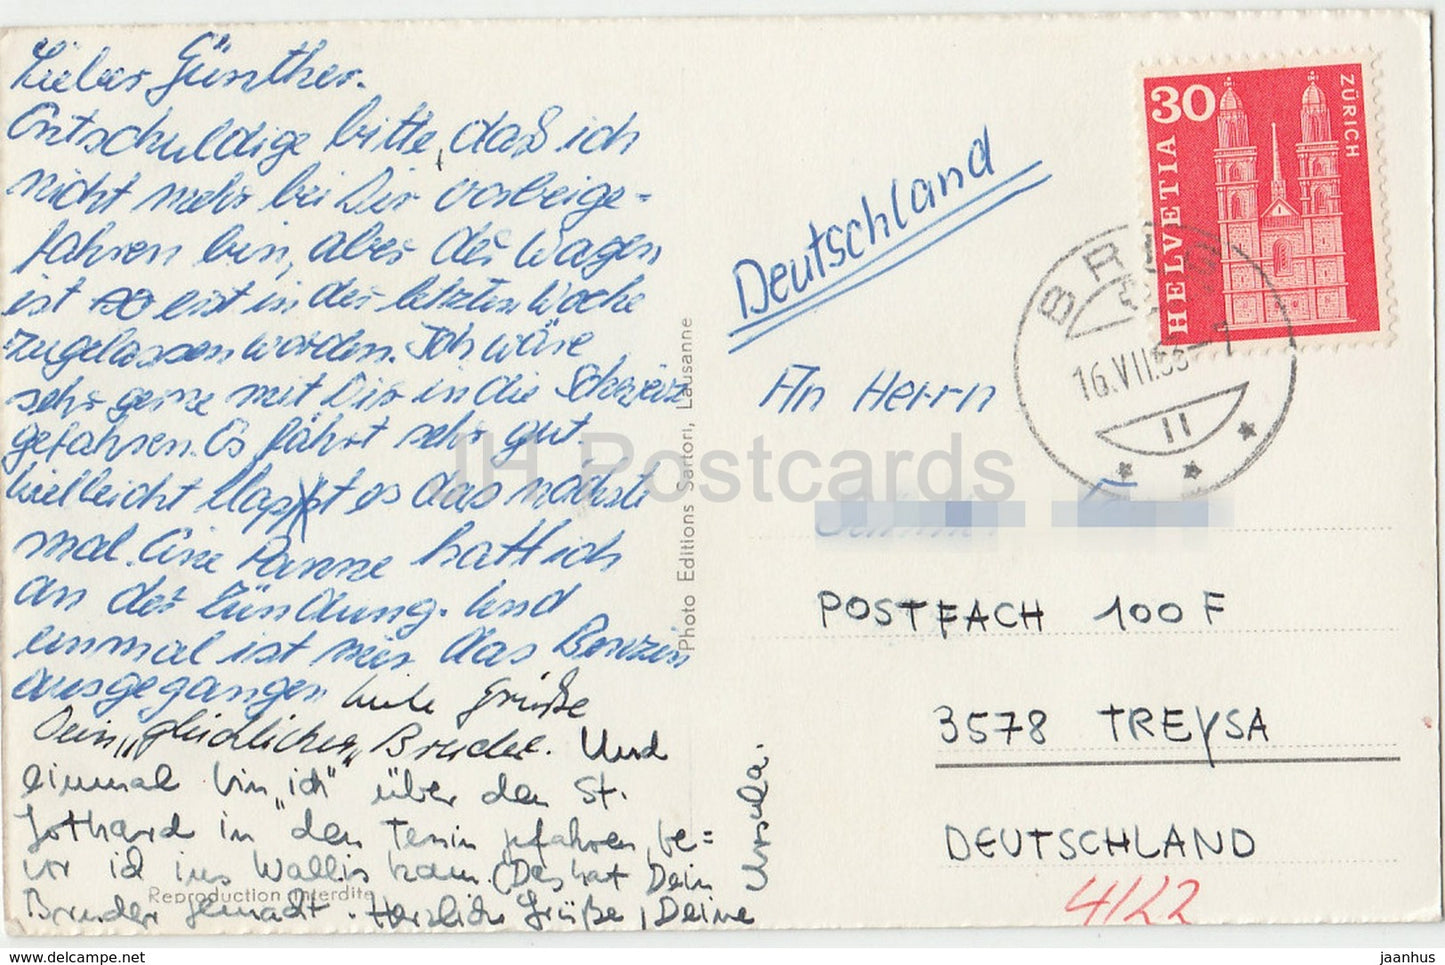 Lieber Günther.
Entschuldige bitte, daß ich
nicht mehr bei Dir vorbeige-
fahren bin, aber der Wagen
ist erst in der letzten Woche
zugelassen worden. Ich wäre
sehr gerne mit Dir in die Schweiz
gefahren. Es fährt sehr gut.
Vielleicht klappt es das nächste
mal. Eine Panne hatt ich
an der Zündung. Und
einmal ist mir das Benzin
ausgegangen. Liebe Grüße
Dein „glücklicher" Bruder. Und
einmal bin „ich" über den St.
Gotthard in den Tessin gefahren, be=
vor ich ins Wallis kam. (Das hat Dein
Bruder gemacht. Herzliche Grüße, Deine
Ursula.
Reproduction interdite
Photo Editions Sartori, Lausanne
JH Postcards
Deutschland
30
HELVETIA
ZÜRICH
BRUGG
16.VII.
11
An Herrn
POSTFACH 100 F
3578 TREYSA
DEUTSCHLAND
4/22
www.delcampe.net
jaanhus